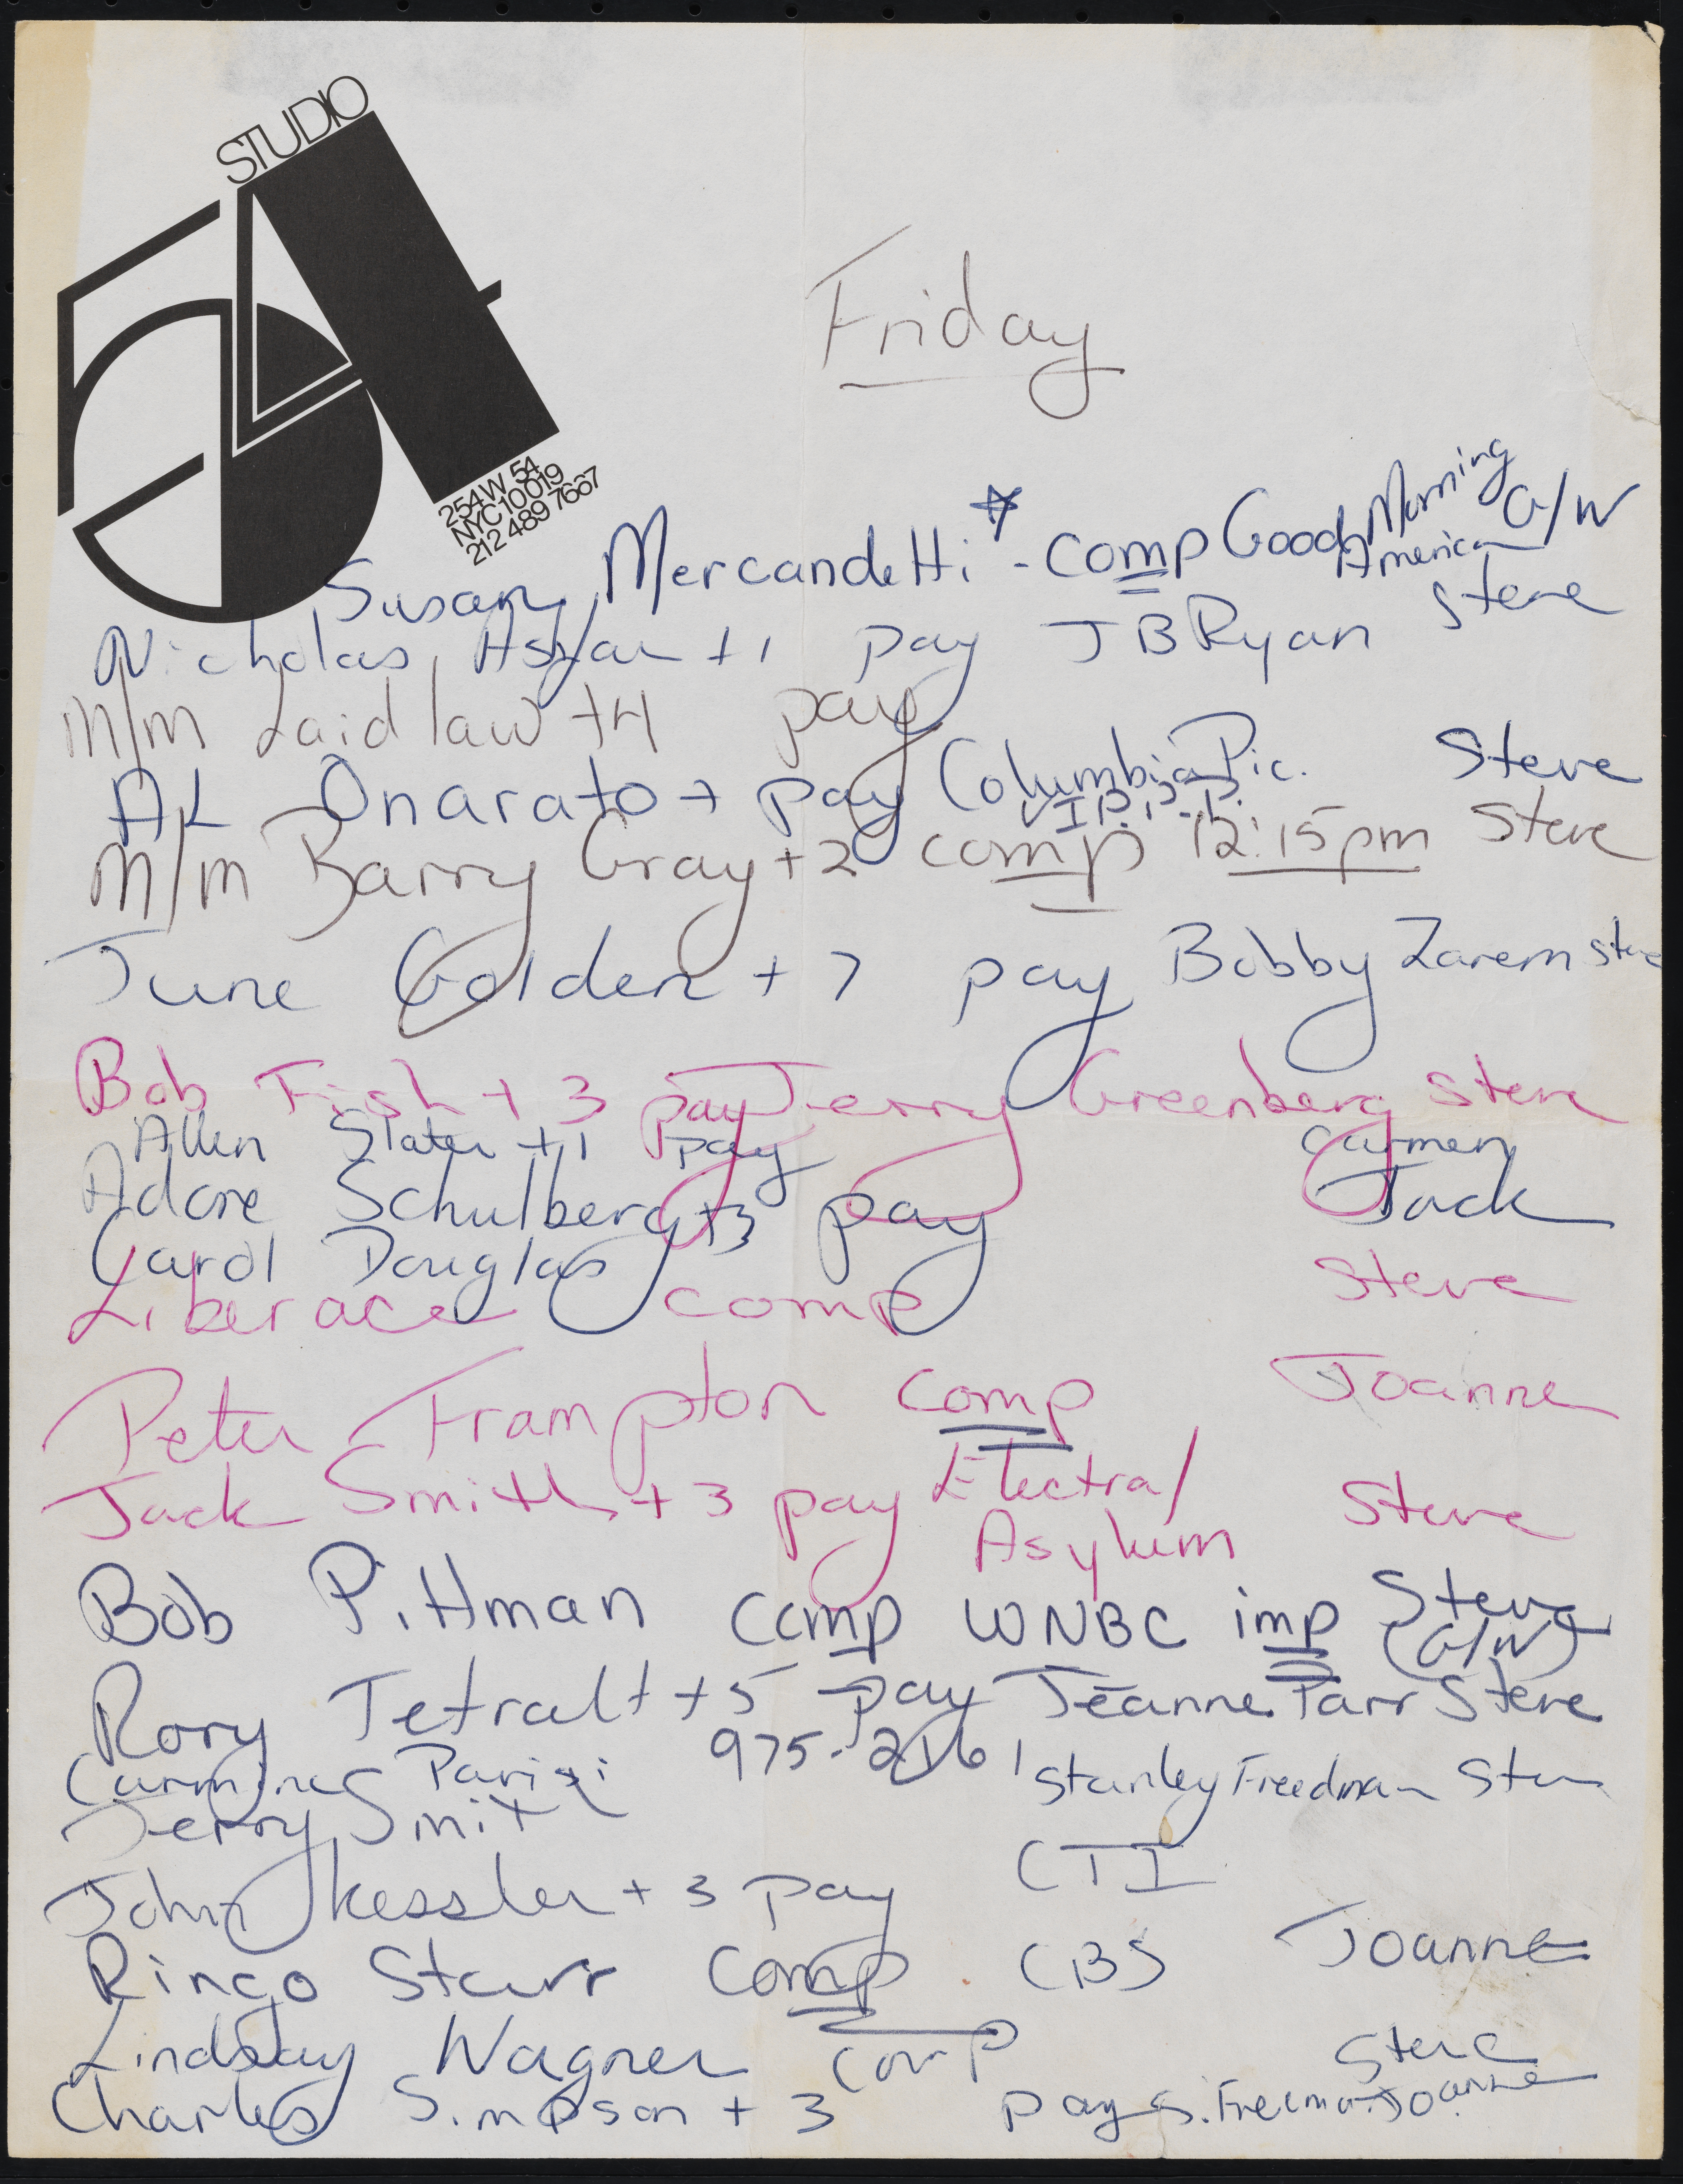 STUDIO
54
254 W 54
NYC 10019
212 489 7667
Friday
Susan Mercandetti * - comp Good Morning America G/W
Nicholas +1 pay J B Ryan Steve
M/M Laidlaw +4 pay
AL Onarato + pay Columbia Pic. Steve
V.I.P.
M/M Barry Gray +2 comp 12:15pm Steve
June Golden + 7 pay Bobby Zarem Steve
Bob Fish + 3 pay Jerry Greenberg Steve
Allen Slater +1 pay Carmen
Adore Schulberg +3 pay Jack
Carol Douglas
Liberace comp Steve
Peter Frampton comp Joanne
Jack Smith + 3 pay Electra/ Steve
Asylum
Bob Pittman comp WNBC imp Steve
(G/W)
Rory +5 pay Jeanne Parr Steve
975-
Carmine Stanley Freedman Steve
Jerry Smith
John Kessler + 3 pay CTI
Ringo Starr comp CBS Joanne
Lindsay Wagner comp Steve
Charles Simpson + 3 pay Joanne